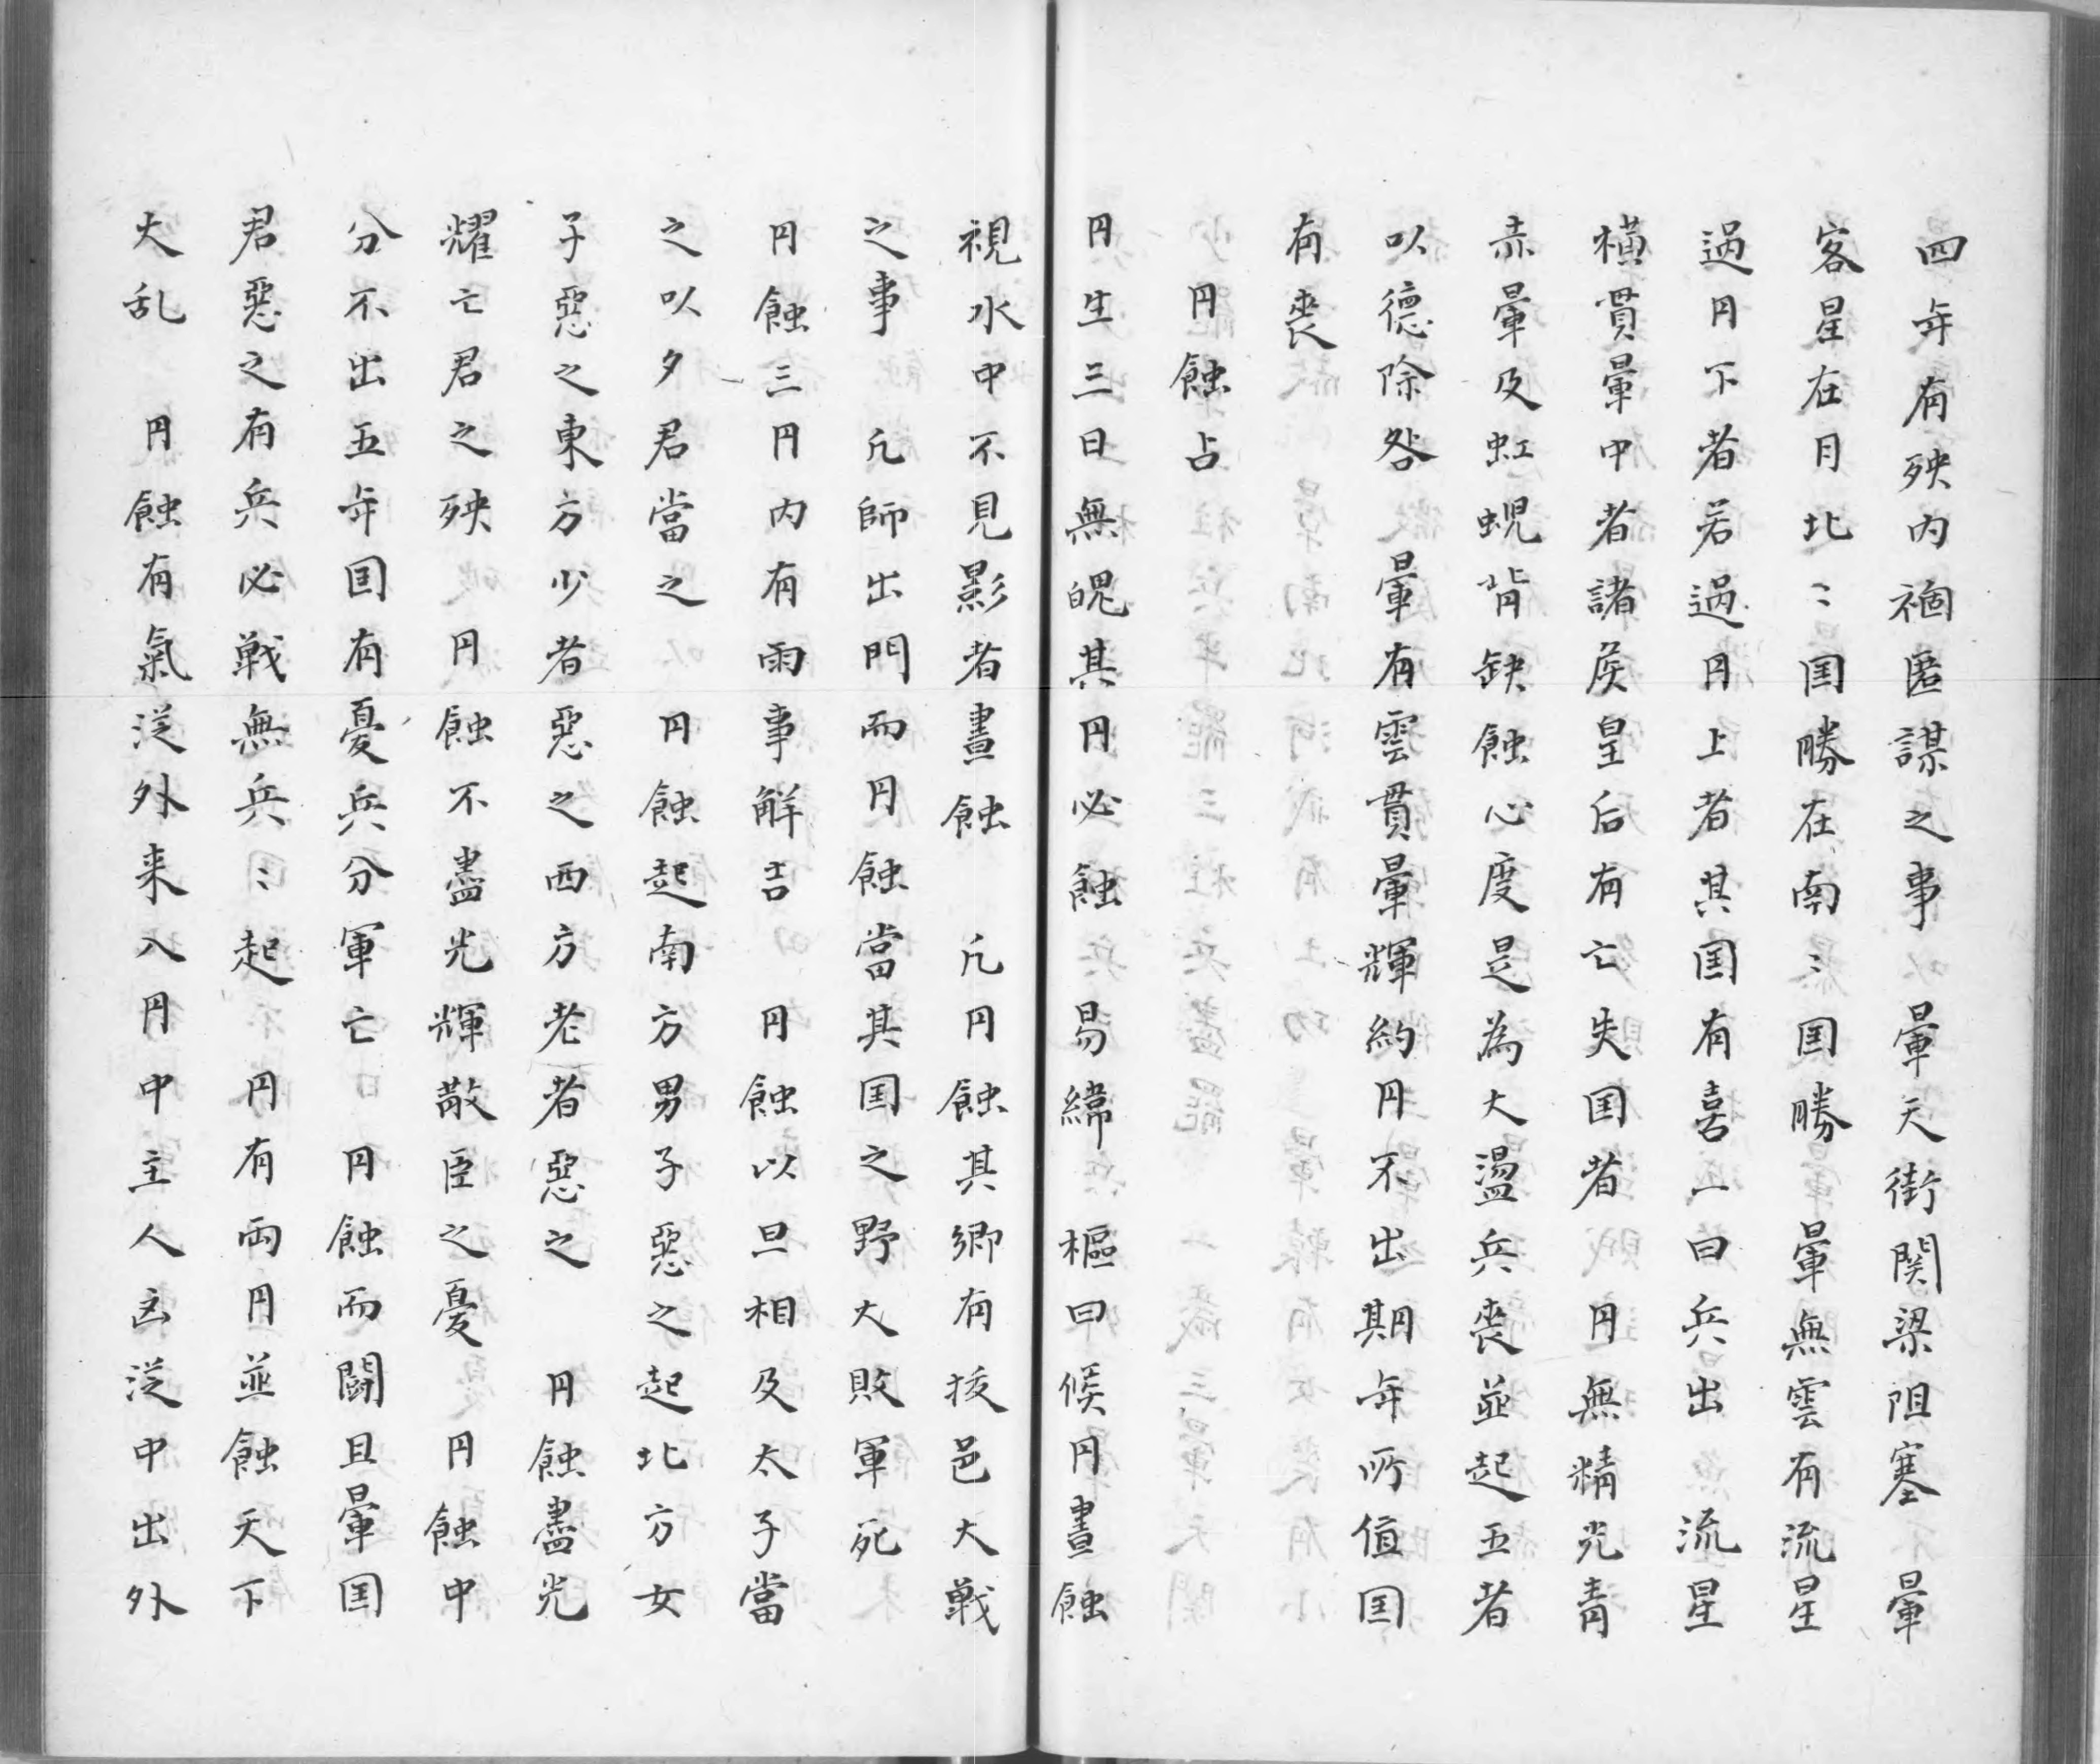 四年有殃内禍匿謀之事　暈天街関梁阻塞　暈
客星在月北〻囯勝在南〻囯勝　暈無雲有流星
過円下者若過円上者其囯有喜一曰兵出　流星
橫貫暈中者諸侯皇后有亡失囯者　円無精光青
赤暈及虹蜺背缺蝕心度是為大盪兵喪並起王者
以德除咎　暈有雲貫暈輝約円不出期年所值囯
有喪
円蝕占
円生三日無魄其円必蝕　易緯　樞曰候円晝蝕
視水中不見影者晝蝕　凡円蝕其鄉有拔邑大戦
之事　凡師出門而円蝕當其囯之野大敗軍死
円蝕三円内有雨事解吉　円蝕以旦相及太子當
之以夕君當之　円蝕起南方男子惡之起北方女
子惡之東方少者惡之西方老者惡之　円蝕盡光
耀亡君之殃　円蝕不盡光輝散臣之憂　円蝕中
分不出五年囯有憂兵分軍亡　円蝕而闘且暈囯
君惡之有兵必戦無兵〻起　円有両円並蝕天下
大乱　円蝕有氣從外来入円中主人凶從中出外